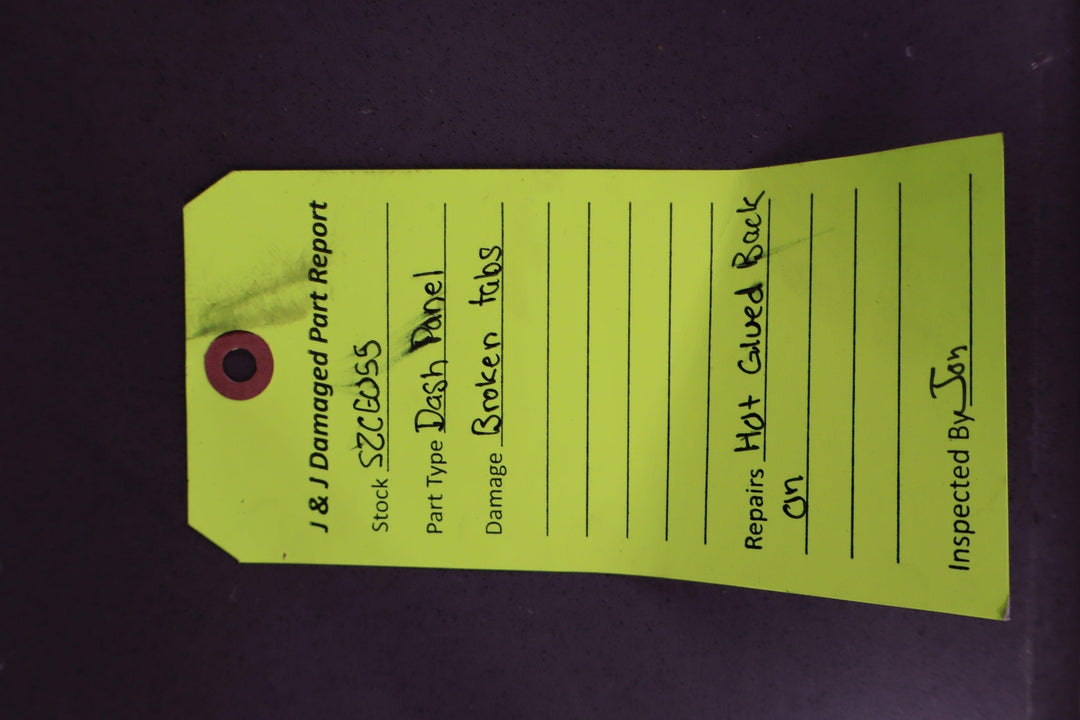 J & J Damaged Part Report
Stock
Part Type Dash Panel
Damage Broken tabs
Repairs Hot Glued Back
on
Inspected By Jon